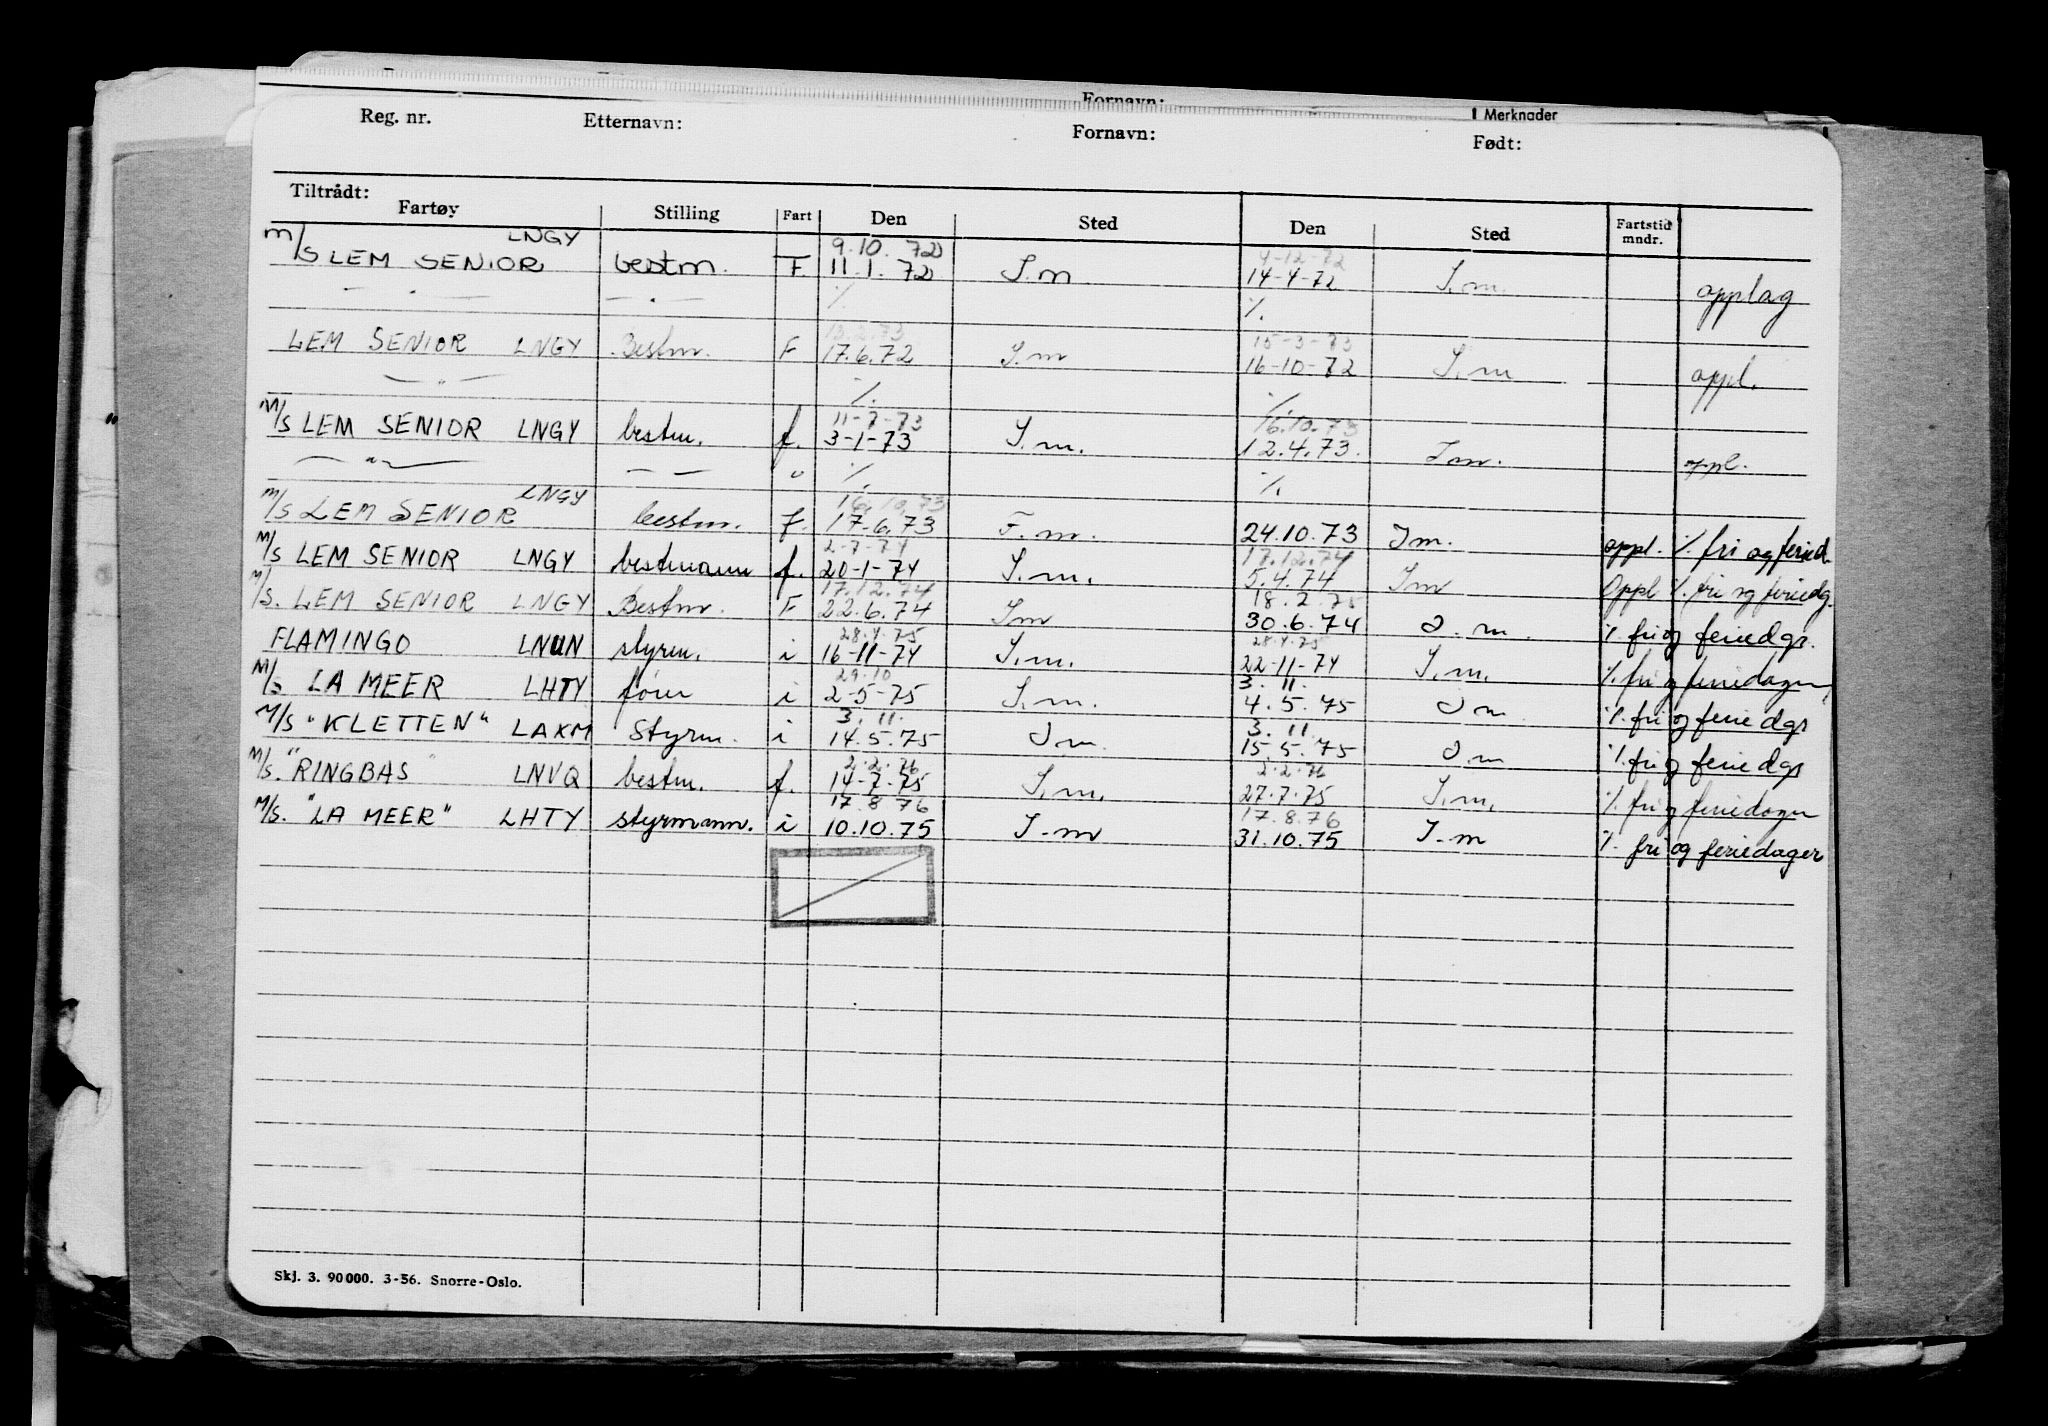 Fornavn:
Merknader
Reg. nr. Etternavn: Fornavn: Født:
Tiltrådt:
Fartøy Stilling Fart Den Sted Den Sted Fartstid mndr.
LNGY 9.10.72 4-12-72
M/S LEM SENIOR bestm. F. 11.1.72 I.m 14-4-72 I.m. opplag
— " — — " — % %.
13.2.73 15-3-73
LEM SENIOR LNGY Bestm. F 17.6.72 I.m 16-10-72 I.m oppl.
— " — %. %.
11-7-73 16.10.73
M/S LEM SENIOR LNGY bestm. f. 3-1-73 I.m. 12.4.73. Im. oppl.
— " — — — " %. %.
LNGY 16.10.73
M/S LEM SENIOR bestm. f. 17.6.73 F.m. 24.10.73 Im. oppl. %. fri og feried.
2-7-74 17.12.74
M/S LEM SENIOR LNGY bestmann f. 20-1-74 I.m. 5.4.74 Im Oppl %. fri og feriedg.
17.12.74 18.2.75
M/S. LEM SENIOR LNGY Bestm. F 22.6.74 Im 30.6.74 I.m. %. fri og feriedgr.
28.4.75 28.4.75
FLAMINGO LNUN styrm. i 16-11-74 I.m. 22-11-74 I.m. %. fri og feriedager
29.10 3. 11.
M/S LA MEER LHTY fører i 2-5-75 I.m. 4.5.75 Im %. fri og feriedgr
3. 11. 3. 11.
M/S "KLETTEN" LAXM Styrm. i 14.5.75 Im. 15.5.75 Im %. fri og feriedgr
2.2.76 2.2.76
M/S. "RINGBAS" LNVQ bestm. f. 14-7-75 I.m. 27.7.75 I.m. %. fri og feriedager
17.8.76 17.8.76
M/S. "LA MEER" LHTY styrmann. i 10.10.75 I.m 31.10.75 I.m %. fri og feriedager
Skj. 3. 90000. 3-56. Snorre-Oslo.